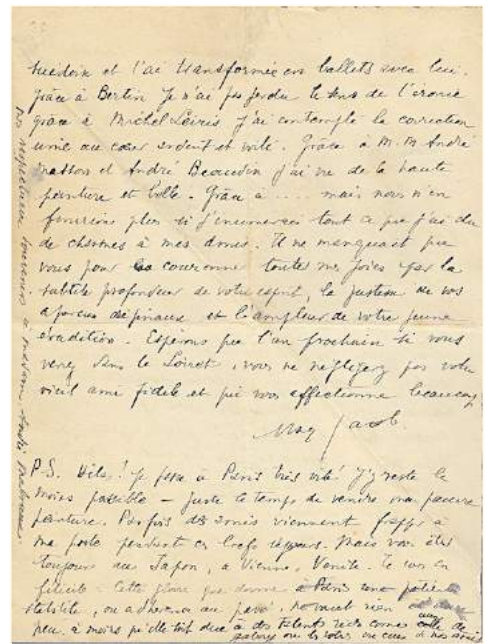 suédois et l'ai transformée en ballets avec lui.
Grâce à Bertin je n'ai pas perdu le sens de l'ironie
grâce à Michel Leiris j'ai contemplé la correction
unie au cœur ardent et voilé. Grâce à M. M. André
Masson et André Beaudin j'ai vu de la haute
peinture et belle. Grâce à .... mais nous n'en
finirions plus si j'énumérais tout ce que j'ai dû
de charmes à mes amis. Il ne manquait que
vous pour couronner toutes mes joies par la
subtile profondeur de votre esprit, la justesse de vos
aperçus et l'ampleur de votre jeune
érudition. Espérons que l'an prochain si vous
venez dans le Loiret, vous ne négligerez pas votre
vieil ami fidèle et qui vous affectionne beaucoup
Max Jacob
P.S. Hélas! je passe à Paris très vite! J'y reste le
moins possible – juste le temps de vendre ma pauvre
peinture. Parfois des amis viennent frapper à
ma porte pendant ces brefs séjours. Mais vous êtes
toujours au Japon, à Vienne, Venise. Je vous en
félicite. Cette gloire que donne à Paris une patiente
stabilité, ou adhérence au pavé, ne vaut rien
peu à moins qu'elle soit due à des talents réels comme celle de
ou ceux de nos amis
mes respectueux souvenirs à madame André